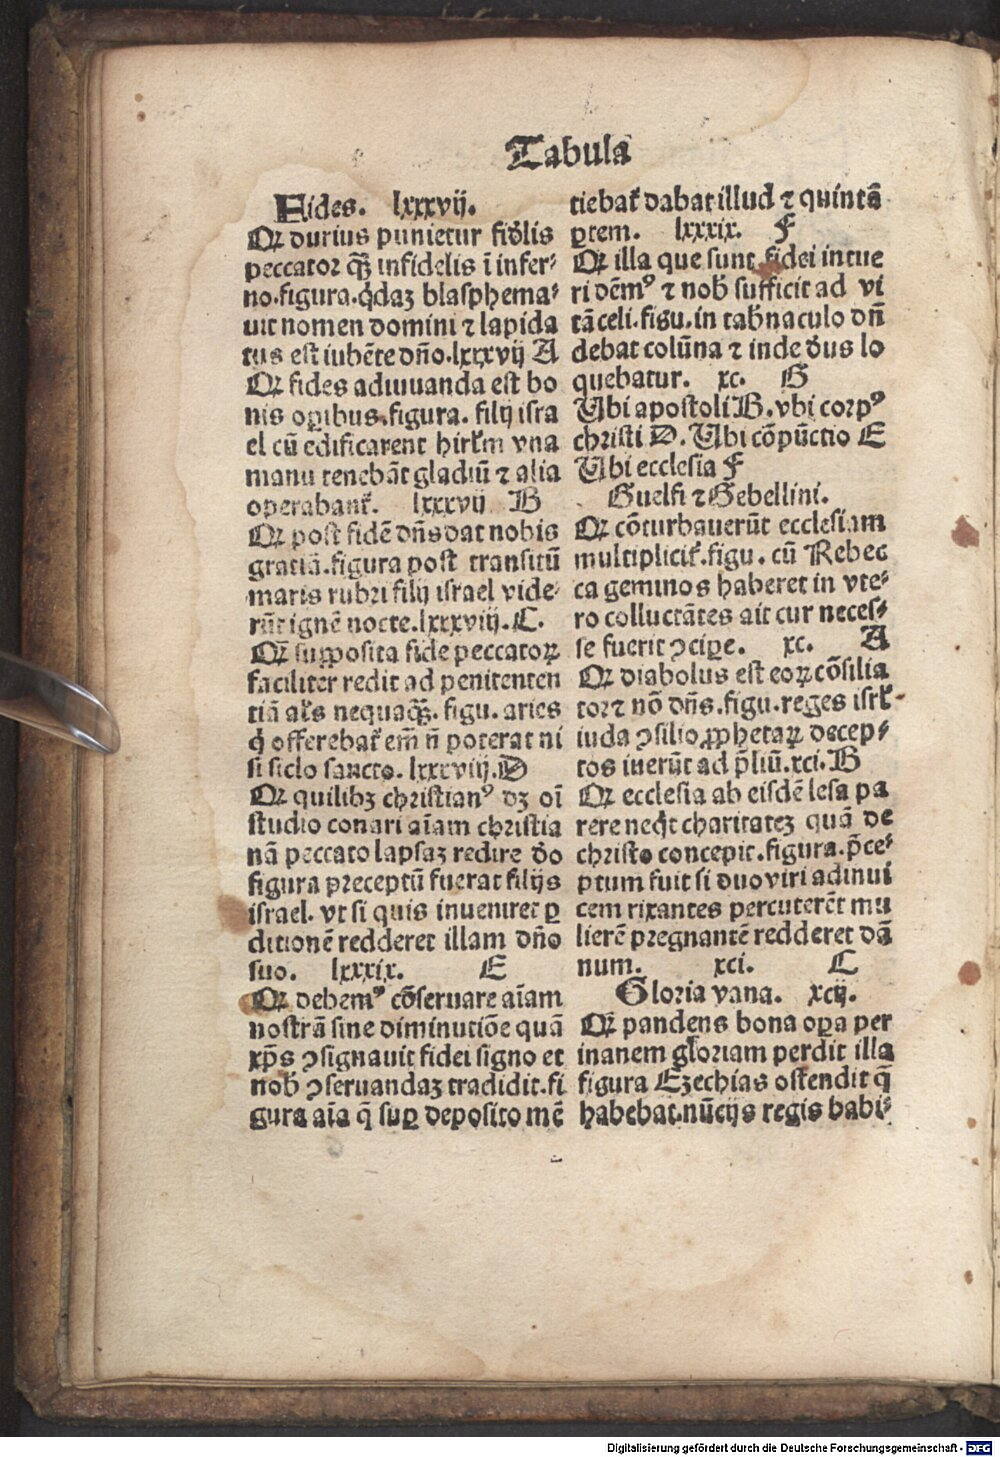 Tabula
Fides. lxxxvij.
Qꝛ durius punietur fidꝉis
peccatoꝛ qꝫ̃ infidelis ĩ infer⸗
no.figura.qͥdaꝫ blasphema⸗
uit nomen domini ⁊ lapida
tus est iubẽte dño.lxxxvij A
Qꝛ fides adiuuanda est bo
nis oꝑibus.figura. filij isra
el cũ edificarent hirꝉm vna
manu tenebãt gladiũ ⁊ alia
operabantᷣ. lxxxvij B
Qꝛ post fidẽ dñs dat nobis
gratiã.figura post transitũ
maris rubꝛi filij israel vide⸗
rũt ignẽ nocte.lxxxviij.C.
Qꝛ supposita fide peccatoꝝ
faciliter redit ad penitenten
tiã aꝉs nequaqꝫ̃. figu. aries
qͥ offerebatᷣ em̃ ñ poterat ni
si siclo sancto. lxxxviij.D
Qꝛ quilibꝫ chꝛistianꝰ dꝫ oĩ
studio conari aĩam chꝛistia
nã peccato lapsaꝫ redire dõo
figura pꝛeceptũ fuerat filijs
israel. vt si quis inueniret ꝑ
ditionẽ redderet illam dño
suo. lxxxix. E
Qꝛ debemꝰ cõseruare aĩam
nostrã sine diminutiõe quã
xp̃s ꝯsignauit fidei signo et
nob̃ ꝯseruandaꝫ tradidit.fi
gura aĩa q̃ suꝑ deposito mẽ
tiebatᷣ dabat illud ⁊ quintã
ꝑtem. lxxxix. F
Qꝛ illa que sunt fidei intue
ri dẽmꝰ ⁊ nob̃ sufficit ad vi
tã celi.figu.in tab̃naculo dñ
debat colũna ⁊ inde dẽus lo
quebatur. xc. G
Vbi apostoli B.vbi coꝛpꝰ
chꝛisti D. Vbi cõpũctio E
Vbi ecclesia F
Guelfi ⁊ Gebellini.
Qꝛ cõturbauerũt ecclesiam
multiplicitᷣ.figu. cũ Rebec
ca geminos haberet in vte⸗
ro colluctãtes ait cur neces⸗
se fuerit ꝯciꝑe. xc. A
Qꝛ diabolus est eoꝝ cõsilia
toꝛ ⁊ nõ dñs.figu.reges isrꝉ
iuda ꝯsilio ꝓphetaꝝ decep⸗
tos inerũt ad p̃liũ.xci.B
Qꝛ ecclesia ab eisdẽ lesa pa
rere neqͥt charitateꝫ quã de
chꝛisto concepit.figura.p̃ce⸗
ptum fuit si duo viri adinui
cem rixantes percuterẽt mu
lierẽ pꝛegnantẽ redderet dã
num. xci. C
Gloꝛia vana. xcij.
Qꝛ pandens bona oꝑa per
inanem gloꝛiam perdit illa
figura Eꝫechias ostendit q̃
habebat.nũcijs regis babi⸗
Digitalisierung gefördert durch die Deutsche Forschungsgemeinschaft - DFG